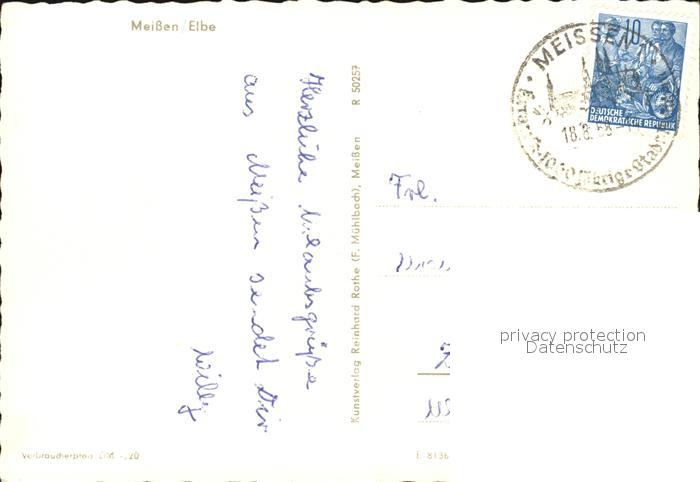 Meißen / Elbe
Herzliche Urlaubsgrüße
aus Meißen sendet Dir
Willy
Kunstverlag Reinhard Rothe (F. Mühlbach), Meißen R 50257
Verbraucherpreis DM -,20
MEISSEN
18.8.58
1000jährige Stadt
10
DEUTSCHE
DEMOKRATISCHE REPUBLIK
Frl.
privacy protection
Datenschutz
E 8136